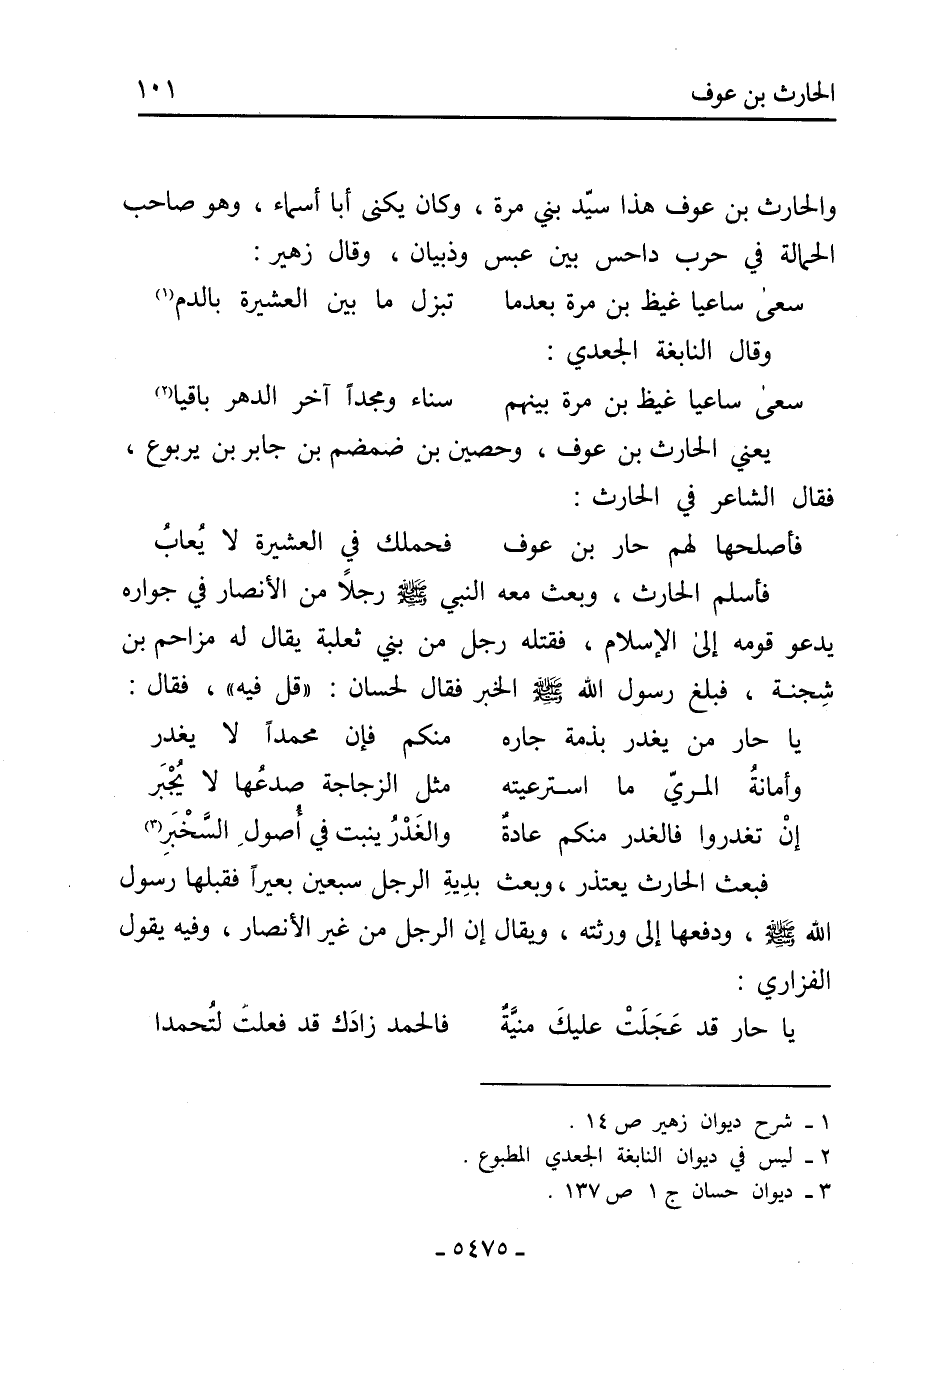 الحارث بن عوف ١٠١
والحارث بن عوف هذا سيّد بني مرة ، وكان يكنى أبا أسماء ، وهو صاحب
الحمالة في حرب داحس بين عبس وذبيان ، وقال زهير :
سعىٰ ساعيا غيظ بن مرة بعدما تبزل ما بين العشيرة بالدم(١)
وقال النابغة الجعدي :
سعىٰ ساعيا غيظ بن مرة بينهم سناء ومجداً آخر الدهر باقيا(٢)
يعني الحارث بن عوف ، وحصين بن ضمضم بن جابر بن يربوع ،
فقال الشاعر في الحارث :
فأصلحها لهم حار بن عوف فحملك في العشيرة لا يُعابُ
فأسلم الحارث ، وبعث معه النبي ﷺ رجلاً من الأنصار في جواره
يدعو قومه إلىٰ الإسلام ، فقتله رجل من بني ثعلبة يقال له مزاحم بن
شِجنة ، فبلغ رسول الله ﷺ الخبر فقال لحسان : «قل فيه» ، فقال :
يا حار من يغدر بذمة جاره منكم فإن محمداً لا يغدر
وأمانةُ المريّ ما استرعيته مثل الزجاجة صدعُها لا يُجْبَر
إنْ تغدروا فالغدر منكم عادةٌ والغَدْرُ ينبت في أُصولِ السَّخْبَرِ(٣)
فبعث الحارث يعتذر ، وبعث بدِيةِ الرجل سبعين بعيراً فقبلها رسول
الله ﷺ ، ودفعها إلى ورثته ، ويقال إن الرجل من غير الأنصار ، وفيه يقول
الفزاري :
يا حار قد عَجَلَتْ عليكَ منيَّةٌ فالحمد زادَك قد فعلتَ لتُحمدا
١ ـ شرح ديوان زهير ص ١٤ .
٢ ـ ليس في ديوان النابغة الجعدي المطبوع .
٣ ـ ديوان حسان ج ١ ص ١٣٧ .
ـ ٥٤٧٥ ـ